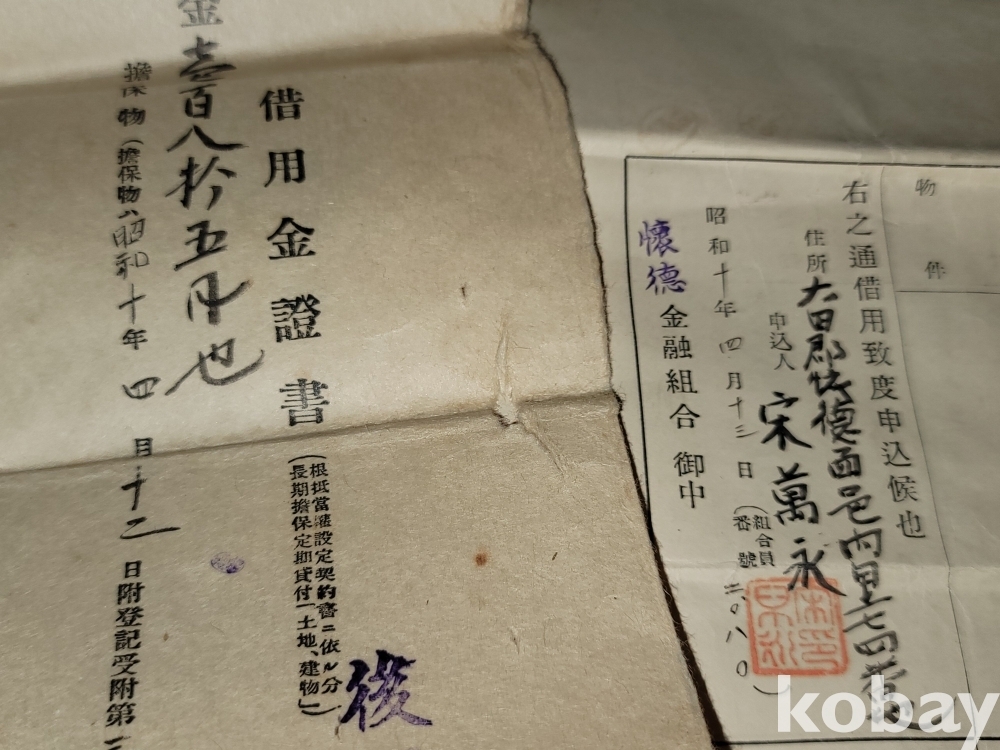 借用金證書
(根抵當權設定契約書ニ依ル分
長期擔保定期貸付「土地、建物」)
後
金壹百八拾五円也
擔保物(擔保物ハ昭和十年四月十二日附登記受附第
物件
右之通借用致度申込候也
住所 大田郡懷德面邑內里七四番
申込人 宋萬永
(組合員
番號 二〇八〇)
昭和十年四月十三日
懷德金融組合 御中
kobay